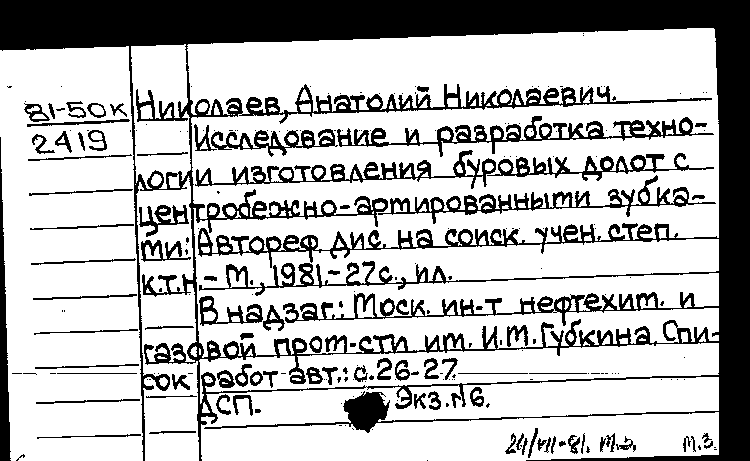 81-50к Николаев, Анатолий Николаевич.
2419 Исследование и разработка техно-
логии изготовления буровых долот с
центробежно-артированными зубка-
ми: Автореф. дис. на соиск. учен. степ.
к.т.н. - М., 1981. - 27с., ил.
В надзаг.: Моск. ин-т нефтехим. и
газовой пром-сти им. И.М. Губкина. Спи-
сок работ авт.: с. 26-27.
ДСП. Экз. №6.
24/VII-81. м.з. м.з.